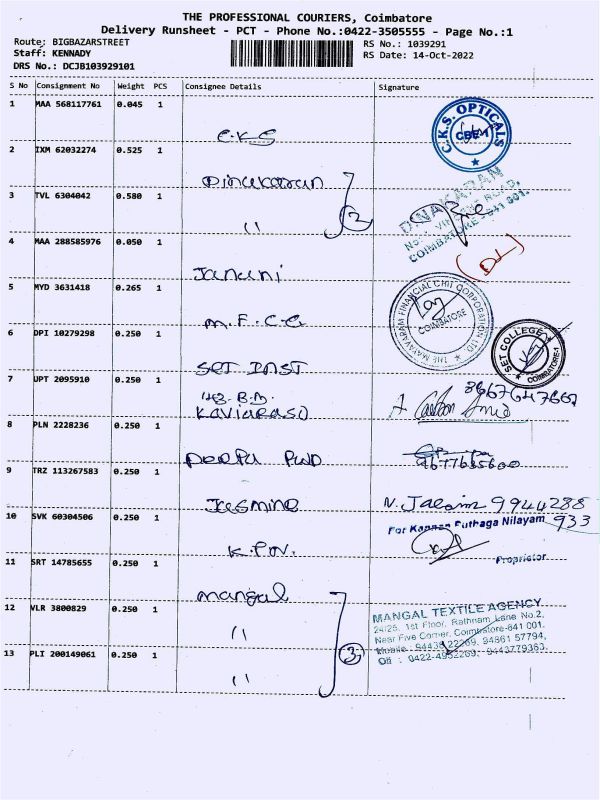 THE PROFESSIONAL COURIERS, Coimbatore
Delivery Runsheet - PCT - Phone No.:0422-3505555 - Page No.:1
Route: BIGBAZARSTREET
RS No.: 1039291
Staff: KENNADY
RS Date: 14-Oct-2022
DRS No.: DCJB103929101
S No Consignment No Weight PCS Consignee Details Signature
1 MAA 568117761 0.045 1
C.K.S
C.K.S. OPTICALS
CBE-1
2 IXM 62032274 0.525 1
Dinakaran
DINAKARAN
3 TVL 6304042 0.580 1
"
2
COIMBATORE - 641 001.
4 MAA 288585976 0.050 1
Janani
5 MYD 3631418 0.265 1
M.F.C.C
THE MAYAVARAM FINANCIAL CHIT CORPORATION LTD
COIMBATORE
6 DPI 10279298 0.250 1
SET INST
SET COLLEGE
COIMBATORE-1
7 UPT 2095910 0.250 1
42. B.M.
Kaviarasu
8 PLN 2228236 0.250 1
Deepa PWD
9677635600
9 TRZ 113267583 0.250 1
Jasmine
N. Jasim 9944288
933
10 SVK 60304506 0.250 1
K.P.N.
For Kannan Puthaga Nilayam
Proprietor
11 SRT 14785655 0.250 1
Mangal
12 VLR 3800829 0.250 1
"
3
MANGAL TEXTILE AGENCY
24/25, 1st Floor, Rathnam Lane No.2,
Near Five Corner, Coimbatore-641 001.
94861 57794,
Off : 0422-4952269, 9443779363
13 PLI 200149061 0.250 1
"